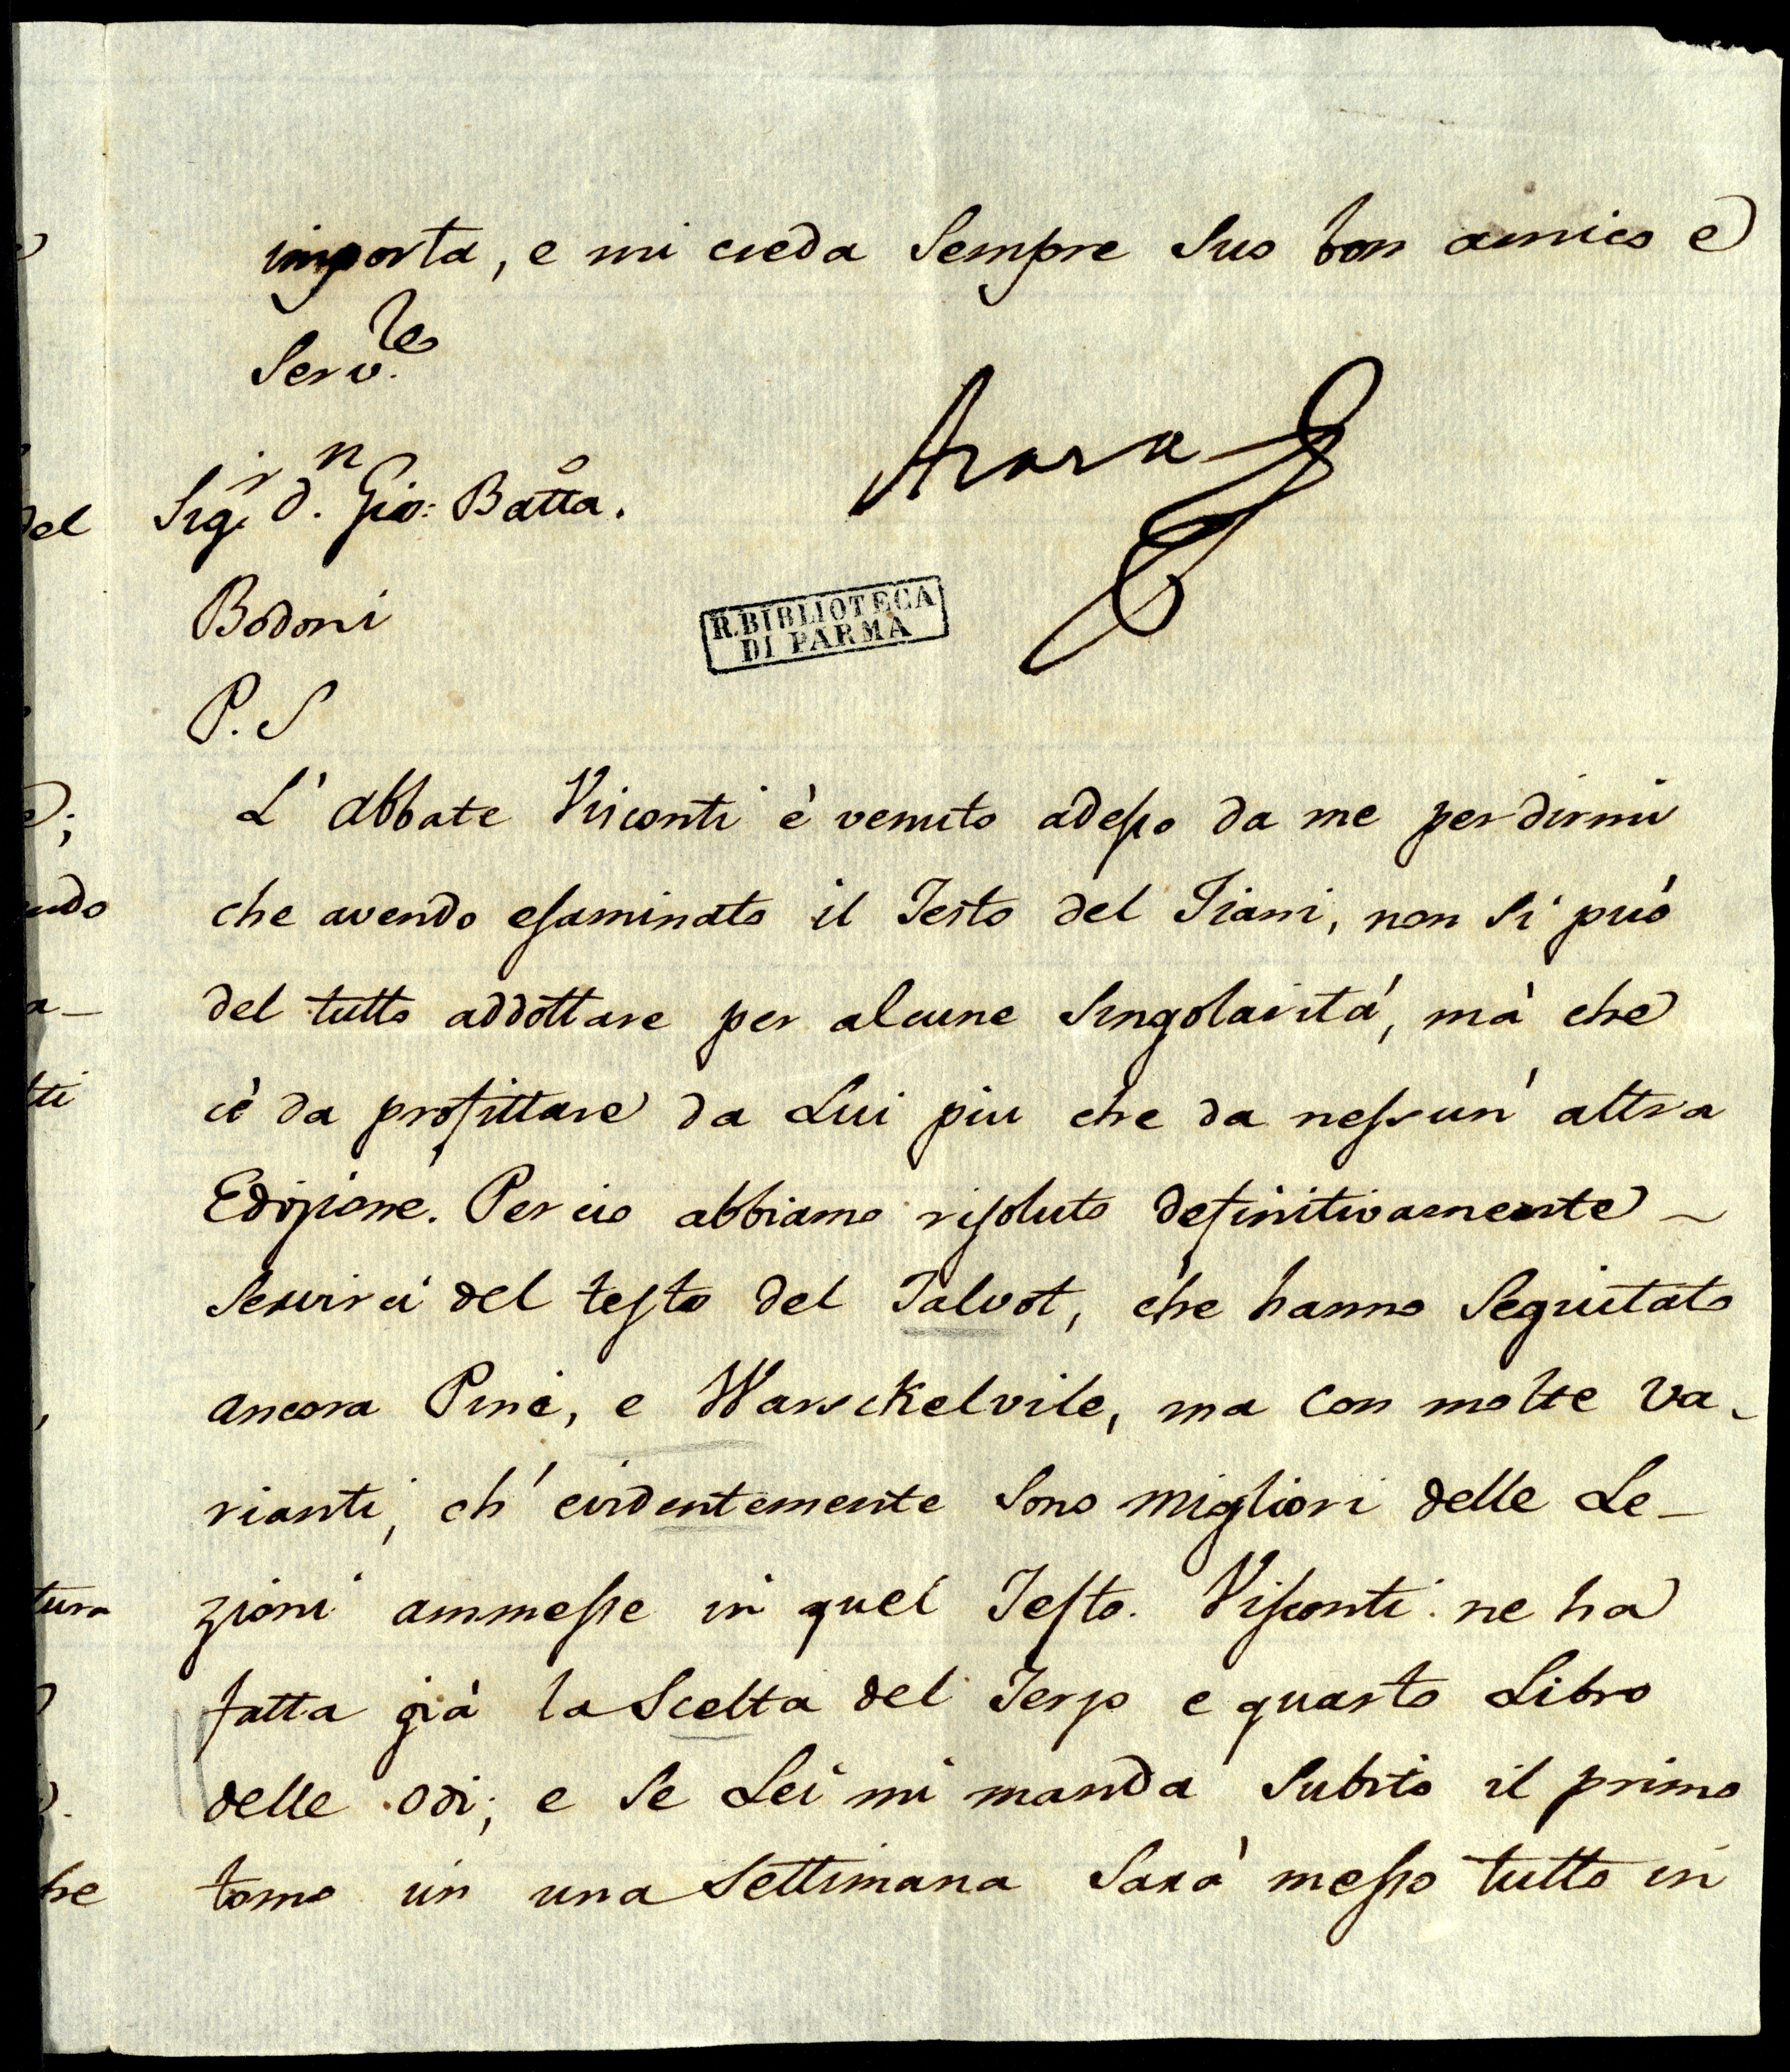 importa, e mi creda sempre suo bon amico e
Serv.le
Azara
Sig.r D.n Gio: Batta.
Bodoni
R. BIBLIOTECA
DI PARMA
P. S
L'abbate Visconti è venuto adesso da me per dirmi
che avendo esaminato il Testo del Jiani, non si può
del tutto addottare per alcune singolarità, mà che
c'è da profittare da Lui piu che da nessun' altra
Edizione. Per cio abbiamo risoluto definitivamente
servirci del testo del Talvot, che hanno seguitato
ancora Piné, e Warsckelvile, ma con molte va-
rianti, ch' evidentemente sono migliori delle Le-
zioni ammesse in quel Testo. Visconti ne ha
fatta già la scelta del Terzo e quarto Libro
delle Odi; e se Lei mi manda subito il primo
tomo in una settimana sarà messo tutto in
del
udo
a-
tti
tura
he